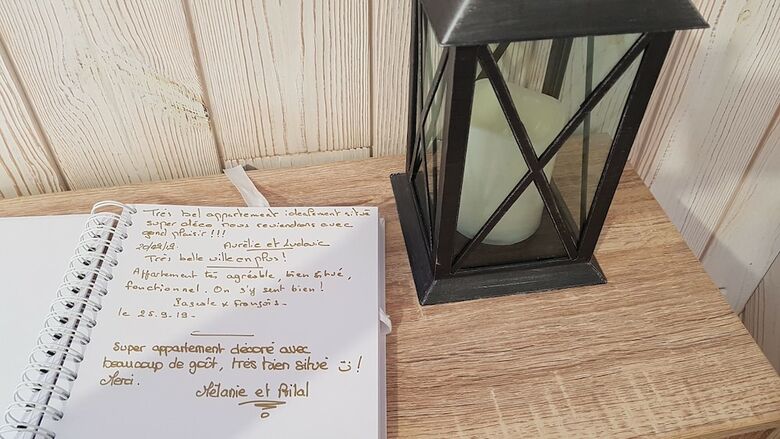 Très bel appartement idéalement situé
super déco nous reviendrons avec
grand plaisir !!!
Aurélie et Ludovic
Très belle ville en plus !
Appartement très agréable, bien situé,
fonctionnel. On s'y sent bien !
Pascale & François -
le 25.9.19 -
Super appartement décoré avec
beaucoup de goût, très bien situé !
Merci.
Mélanie et